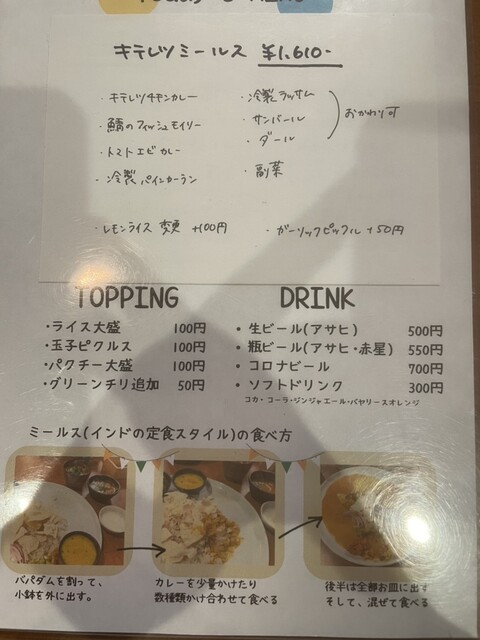 キテレツミールス ¥1,610-
・キテレツチキンカレー
・鯖のフィッシュモイリー
・トマトエビカレー
・冷製パインカーラン
・冷製ラッサム
・サンバール
・ダール
おかわり可
・副菜
・レモンライス 変更 +100円
・ガーリックピックル +50円
TOPPING
・ライス大盛 100円
・玉子ピクルス 100円
・パクチー大盛 100円
・グリーンチリ追加 50円
DRINK
・生ビール(アサヒ) 500円
・瓶ビール(アサヒ・赤星) 550円
・コロナビール 700円
・ソフトドリンク 300円
コカ・コーラ・ジンジャエール・バヤリースオレンジ
ミールス(インドの定食スタイル)の食べ方
パパダムを割って、
小鉢を外に出す。
カレーを少量かけたり
数種類かけ合わせて食べる
後半は全部お皿に出す
そして、混ぜて食べる